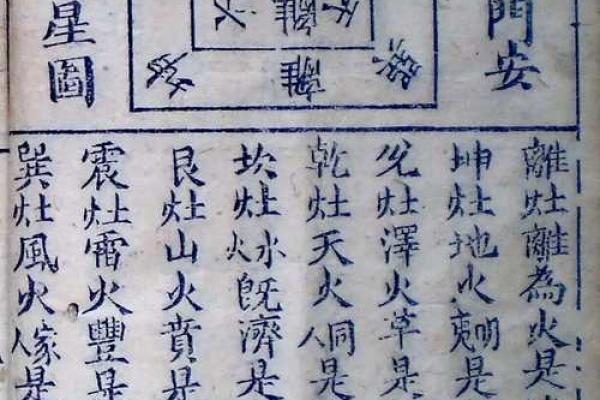 門安
離
離
星圖
離灶離為火是
坤灶地火明夷是
兌灶澤火草是
乾灶天火同人是
坎灶水火既濟是
艮灶山火賁是
震灶雷火豐是
巽灶風火家人是